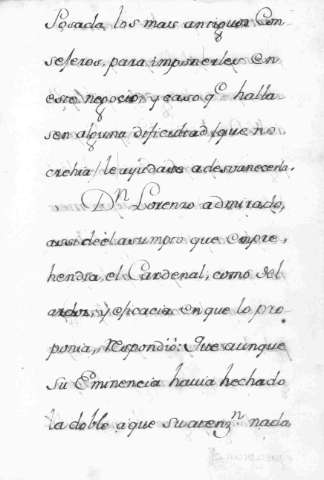 Posada, los mas antiguos Con
sejeros, para imponerles en
este negocio: y caso q.e halla
sen alguna dificultad (que no
crehia) le ayudase a desvanecerla.
D.n Lorenzo admirado,
assi de el assumpto que empre,
hendia, el Cardenal, como del
ardor, y eficacia en que lo pro
ponia, Respondió: Que aunque
su Eminencia havia hechado
la doble, a que su atenz.n nada